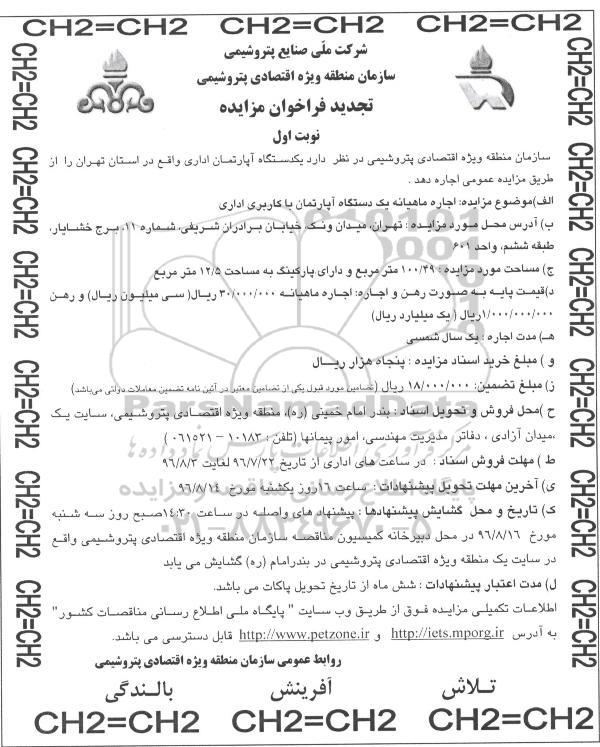 CH2=CH2 CH2=CH2 CH2=CH2 CH2=CH2
شرکت ملّی صنایع پتروشیمی
سازمان منطقه ویژه اقتصادی پتروشیمی
تجدید فراخوان مزایده
نوبت اول
سازمان منطقه ویژه اقتصادی پتروشیمی در نظر دارد یکدستگاه آپارتمان اداری واقع در استان تهران را از
طریق مزایده عمومی اجاره دهد .
الف)موضوع مزایده: اجاره ماهیانه یک دستگاه آپارتمان با کاربری اداری
ب) آدرس محل مورد مزایده : تهران، میدان ونک، خیابان برادران شریفی، شماره ۱۱، برج خشایار،
طبقه ششم، واحد ۶۰۱
ج) مساحت مورد مزایده : ۱۰۰/۴۹ متر مربع و دارای پارکینگ به مساحت ۱۲/۵ متر مربع
د)قیمت پایه به صورت رهن و اجاره: اجاره ماهیانه ۳۰/۰۰۰/۰۰۰ ریال( سی میلیون ریال) و رهن
۱/۰۰۰/۰۰۰/۰۰۰ریال ( یک میلیارد ریال)
هـ) مدت اجاره : یک سال شمسی
و ) مبلغ خرید اسناد مزایده : پنجاه هزار ریــال
ز) مبلغ تضمین: ۱۸/۰۰۰/۰۰۰ ریال (تضامین مورد قبول یکی از تضامین معتبر در آئین نامه تضمین معاملات دولتی می‌باشد)
ح )محل فروش و تحویل اسناد : بندر امام خمینی (ره)، منطقه ویژه اقتصادی پتروشیمی، سایت یک
،میدان آزادی ، دفاتر مدیریت مهندسی، امور پیمانها (تلفن : ۱۰۱۸۳ – ۰۶۱۵۲۱ )
ط ) مهلت فروش اسناد : در ساعت های اداری از تاریخ ۹۶/۷/۲۲ لغایت ۹۶/۸/۳
ی) آخرین مهلت تحویل پیشنهادات : ساعت ۱۶روز یکشنبه مورخ ۹۶/۸/۱۴
ک) تاریخ و محل گشایش پیشنهادها : پیشنهاد های واصله در ساعت ۱۴:۳۰صبح روز سه شنبه
مورخ ۹۶/۸/۱۶ در محل دبیرخانه کمیسیون مناقصه سازمان منطقه ویژه اقتصادی پتروشیمی واقع
در سایت یک منطقه ویژه اقتصادی پتروشیمی در بندرامام (ره) گشایش می یابد
ل) مدت اعتبار پیشنهادات : شش ماه از تاریخ تحویل پاکات می باشد.
اطلاعات تکمیلی مزایده فوق از طریق وب سایت " پایگاه ملی اطلاع رسانی مناقصات کشور"
به آدرس http://iets.mporg.ir و http://www.petzone.ir قابل دسترسی می باشد.
روابط عمومی سازمان منطقه ویژه اقتصادی پتروشیمی
تــلاش آفرینش بالــندگی
CH2=CH2 CH2=CH2 CH2=CH2
CH2=CH2
CH2=CH2
CH2=CH2
CH2=CH2
CH2=CH2
CH2=CH2
CH2=CH2
CH2=CH2
CH2=CH2
CH2=CH2
CH2=CH2
CH2=CH2
ParsNamadData
۰۲۱-۸۸۳۴۹۶۷۰-۵